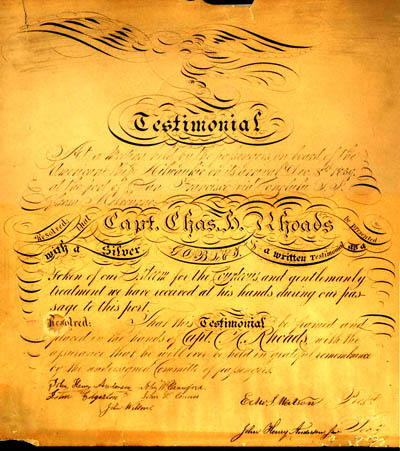 Testimonial
At a meeting held by the passengers on board of the
on its arrival Dec. 8th 1859,
at the port of San Francisco via
from Melbourne
Resolved: that Capt. Chas. H. Rhoads be presented
with a Silver GOBLET, & a written Testimonial as a
Token of our Esteem for the Courteous and gentlemanly
treatment we have received at his hands during our pas-
sage to this port.
Resolved: That this Testimonial be framed and
placed in the hands of Capt. C. H. Rhoads, with the
assurance that he will ever be held in grateful remembrance
by the undersigned Committe of passengers.
John Henry Anderson John W. Crawford
Edgerton John
John
Watson Pres't
John Henry Anderson Jun